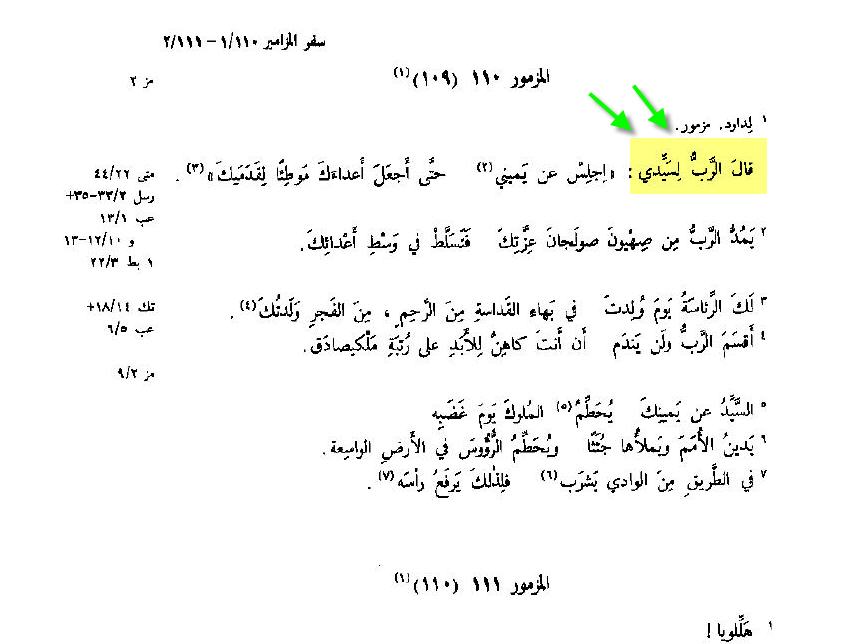 سفر المزامير ١١٠/١ – ١١١/٢
المزمور ١١٠ (١٠٩)(١)
مز ٢
١ لِداود. مزمور.
قالَ الرَّبُّ لِسَيِّدي: «اِجلِسْ عن يَميني(٢) حتَّى أَجعَلَ أَعداءَكَ مَوطِئًا لِقَدَمَيكَ»(٣).
متى ٢٢/٤٤
رسل ٢/٣٣-٣٥+
عب ١/١٣
و ١٠/١٢-١٣
١ بط ٣/٢٢
٢ يَمُدُّ الرَّبُّ مِن صِهْيونَ صولَجانَ عِزَّتِكَ فَتَسَلَّطْ في وَسْطِ أَعْدائِكَ.
٣ لَكَ الرِّئاسَةُ يَومَ وُلِدتَ في بَهاءِ القَداسةِ مِنَ الرَّحِمِ، مِنَ الفَجرِ وَلَدتُكَ(٤).
تك ١٤/١٨+
عب ٥/٦
٤ أَقسَمَ الرَّبُّ ولَن يَندَم أَن أَنتَ كاهِنٌ لِلأَبَدِ على رُتبَةِ مَلْكيصادَق.
مز ٢/٩
٥ السَّيِّدُ عن يَمينِكَ يُحَطِّمُ(٥) المُلوكَ يَومَ غَضَبِه
٦ يَدينُ الأُمَمَ ويَملأُها جُثَثًا ويُحَطِّمُ الرُّؤُوسَ في الأَرضِ الواسِعة.
٧ في الطَّريقِ مِنَ الوادي يَشرَب(٦) فلِذٰلِكَ يَرفَعُ رأسَه(٧).
المزمور ١١١ (١١٠)(١)
١ هَلِّلويا!